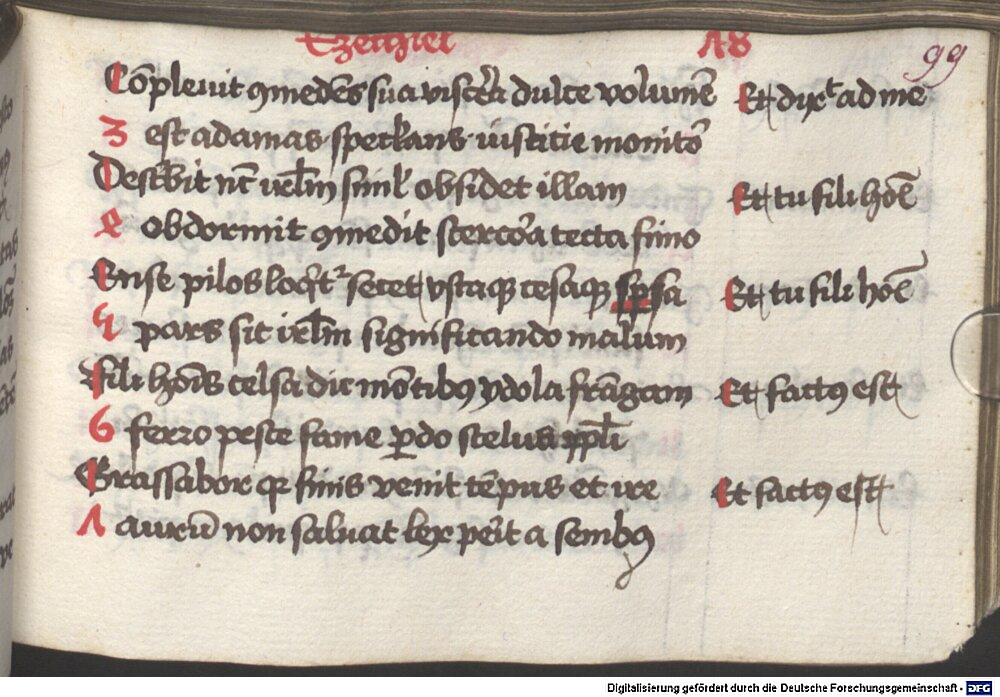 Ezechiel 48 99
Cōpleuit ꝯmedēs sua viscͤa dulce volumē Et dixͭ ad me
3 est adamas speckans iusticie monitoͬ
Describit nͨt ierl̄m simlʼ obsidet illam Et tu fili hoīē
4 obdormit ꝯmedit stercoͬa tecta fimo
Ense pilos secet vstaqꝫ cesaqꝫ sꝑsa Et tu fili hoīē
5 pars sit ierl̄m significando malum
Fili hoīs celsa dic mōtibꝰ ydola frāgam Et factꝰ est
6 ferro peste fame ꝑdo scelus ppl̄i
Grassabor qꝛ finis venit tēpus et ire Et factꝰ est
7 aurū non saluat lex peͥt a senibꝰ
Digitalisierung gefördert durch die Deutsche Forschungsgemeinschaft - DFG